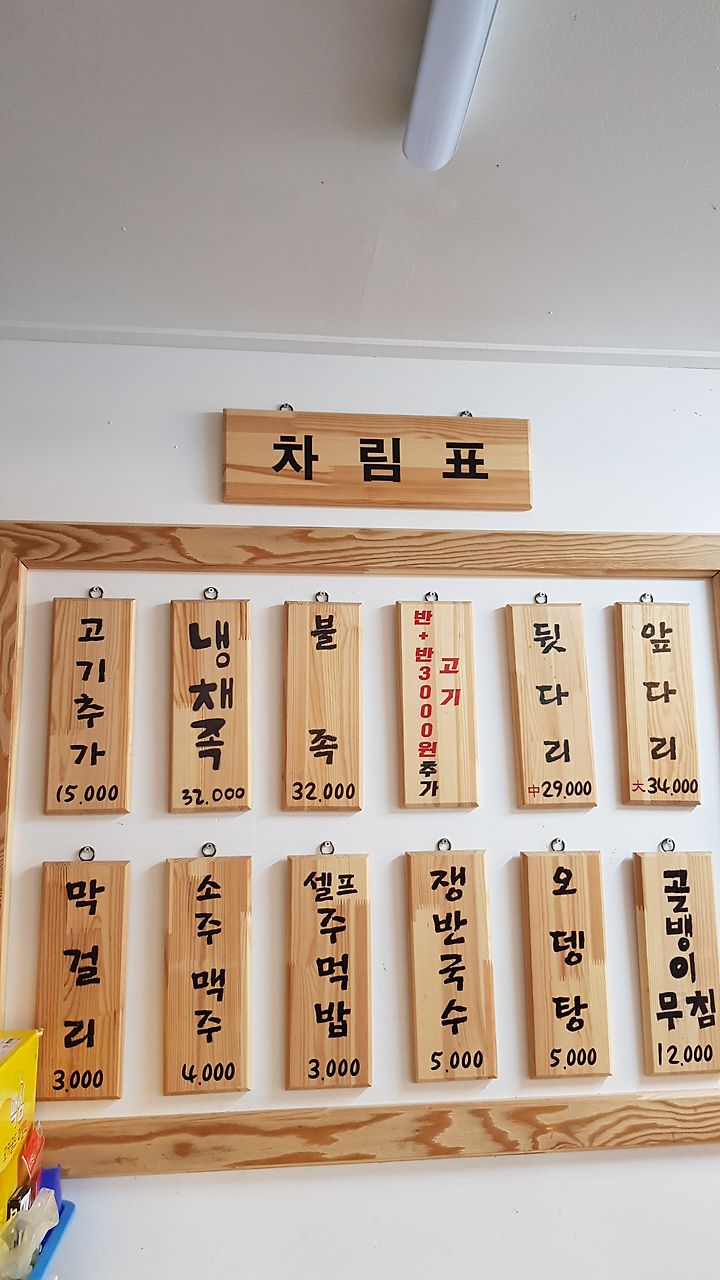 차림표
고기추가
15.000
냉채족
32.000
불족
32.000
반+반3000원추가
고기
뒷다리
中29.000
앞다리
大34.000
막걸리
3.000
소주맥주
4.000
셀프
주먹밥
3.000
쟁반국수
5.000
오뎅탕
5.000
골뱅이
무침
12.000